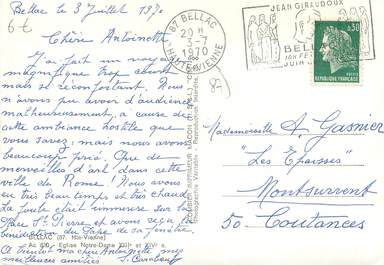 Bellac le 3 Juillet 1970
Chère Antoinette
J'ai fait un voyage
magnifique trop court
mais se reconfortant. Nous
n'avons pu avoir d'audience
malheureusement, a cause de
cette ambiance hostile que
vous savez; mais nous avons
beaucoup prié. Que de
merveilles d'art dans cette
ville de Rome! Nous avons
eu très beau temps et très chaud
La foule était immense sur la
Place St Pierre et avons reçu la
bénédiction du Pape de sa fenêtre.
A bientôt ma chère Antoinette mes
meilleures amitiés
BELLAC (87. Hte-Vienne)
Église Notre-Dame XIIe et XIVe s.
87 BELLAC
20 H
3-7
1970
HAUTE-VIENNE
JEAN GIRAUDOUX
BELLAC
JUIN
0,30
REPUBLIQUE FRANÇAISE
87
Mademoiselle A. Gasnier
"Les Épaisses"
Montsurvent
50 Coutances